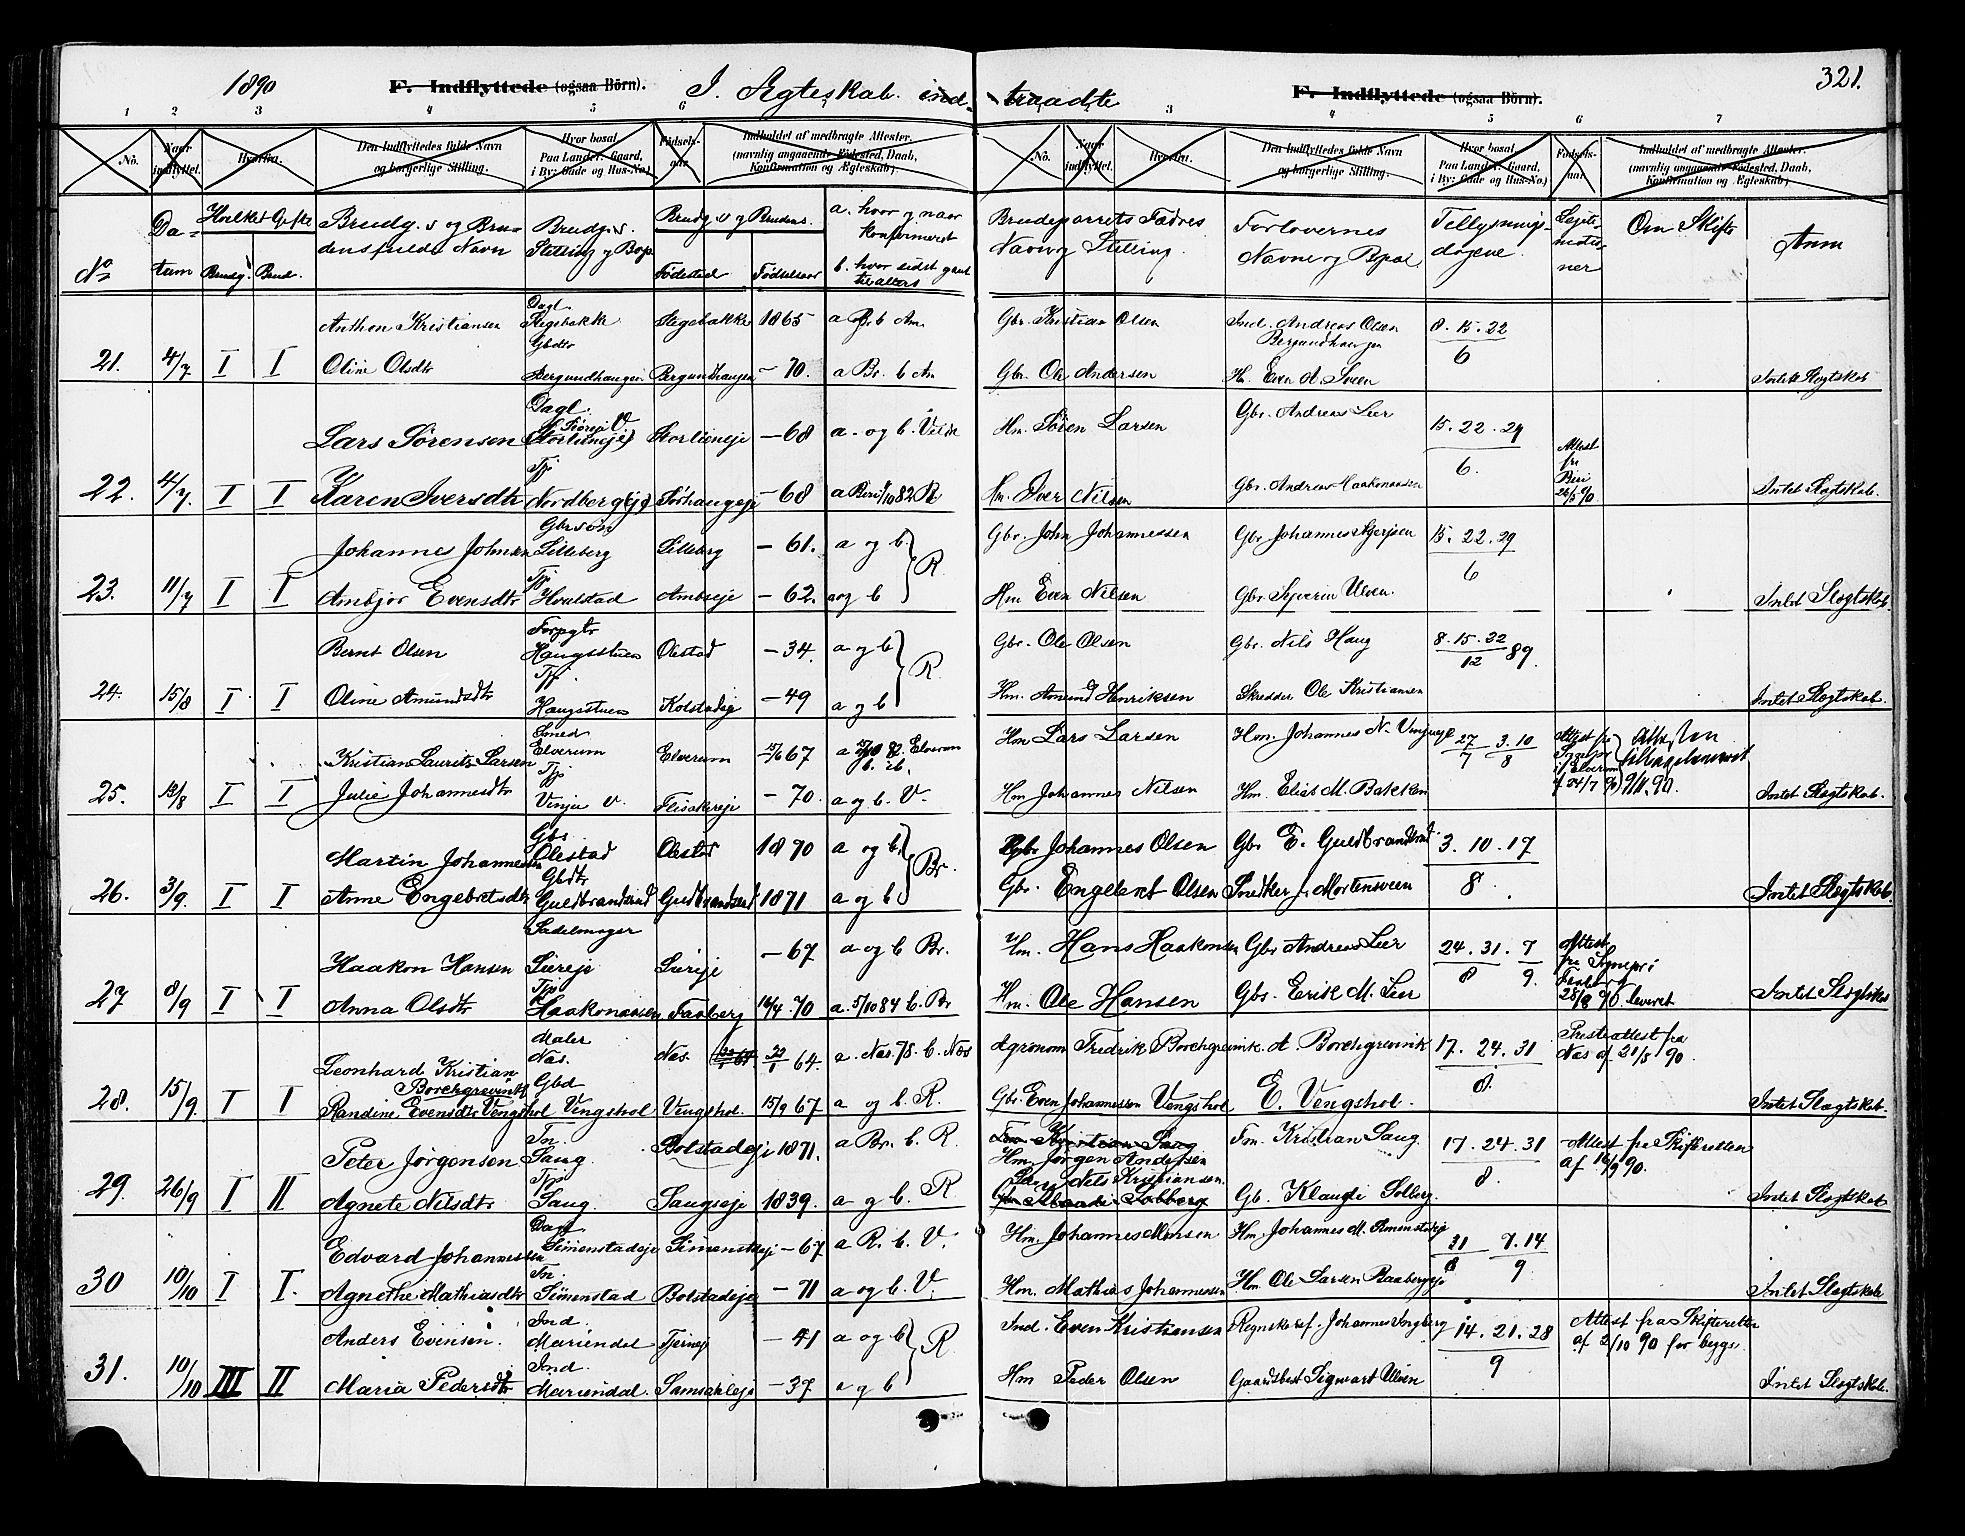 1890 F. Indflyttede (ogsaa Börn). I. Ægteskab indtraadte F. Indflyttede (ogsaa Börn). 321.
1 2 3 4 5 6 3 4 5 6 7
No. Naar indflyttet. Hvorfra. Den Indflyttedes fulde Navn og borgerlige Stilling. Hvor bosat Paa Landet: Gaard, i By: Gade og Hus-No.) Födsels-aar Indholdet af medbragte Attester. (navnlig angaaende Födested, Daab, Konfirmation og Ægteskab)
No. Naar indflyttet. Hvorfra. Den Indflyttedes fulde Navn og borgerlige Stilling. Hvor bosat Paa Landet: Gaard, i By: Gade og Hus-No.) Födsels-aar Indholdet af medbragte Attester. (navnlig angaaende Födested, Daab, Konfirmation og Ægteskab)
No Datum Hvilket Gifte Brudg. Brud. Brudg.s og Brudens fulde Navn Brudg.s Stilling og Bop. Brudg.s og Brudens Fødested Fødselsaar a. hvor og naar konfirmeret b. hvor sidst gaaet til alters
Brudeparrets Fædres Navn og Stilling. Forlovernes Navne og Bopæl Tillysningsdagene. Om Skifte Anm
Anthon Kristiansen Dagl Stegebakke Stegebakke 1865 a Br b Am. Gbr. Kristian Olsen Ind. Andreas Olsen Bergundhaugen 8. 15. 22
21. 4/7 I I Oline Olsdtr Gbdtr Bergundhaugen Bergundhaugen - 70. a Br. b Am Gbr. Ole Andersen H. Even A. Sveen 6 Intet Slægtskab
Lars Sørensen Dagl. Stortieneje Stortieneje - 68 a. og b. V Hm. Søren Larsen Gbr. Andreas Lier 15. 22. 29
22. 4/7. I I Karen Iversdtr Tj Nordberg Sørhaugeje - 68 a Biri 1/10 82 R Hm. Iver Nilsen Gbr. Andreas Haakonsen 6. Attest fra Biri 26/5 90 Intet Slægtskab.
Johannes Johnsen Gbrsøn Lilleberg Lilleberg - 61. a og b. R. Gbr. John Johannessen Gbr Johannes 15. 22. 29
23. 11/7 I I Ambjør Evensdtr Tj Hvalstad Ambseje - 62. a og b Hm Even Nilsen Gbr. Syverin Ulven. 6 Intet Slægtskab.
Bernt Olsen Forpgtr Haugsstuen Olestad - 34. a og b R. Gbr. Ole Olsen Gbr. Nils Haug 8. 15. 22
24. 15/8 I I Oline Amundsdtr Tj. Haugsstuen Kolstadeje - 49 a og b Hm. Amund Henriksen Skrædder Ole Kristiansen 12 89. Intet Slægtskab.
Kristian Laurits Larsen Smed Elverum Elverum 67 a 82. Elverum b. ib. Hm Lars Larsen Hm. Johannes N. 27/7 3. 10/8 Attest fra Sognepr i Elverum af 24/7 90 Attesten 9/11 90.
25. I I Julie Johannesdtr Tj Vinju V. Flisakereje - 70. a og b. V. Hm Johannes Nilsen Hm. Elias M. Bakken Intet Slægtskab.
Martin Johannessen Gbs. Olestad Olestad 1870 a og b. Br. Gbr Johannes Olsen Gbr E. Guldbrandsrud 3. 10. 17
26. 3/9. I I Anne Engebretsdtr Gbdtr Guldbrandsrud Guldbrandsrud 1871 a og b Gbr. Engebret Olsen Snedker J. Mortensveen 8. Intet Slægtskab.
Haakon Hansen Sadelmager Liereje Liereje - 67 a og b Br. Hm. Hans Haakonsen Gbr Andreas Lier 24. 31. 7
27 8/9 I I Anna Olsdtr Tj. Haakonaasen Faaberg 16/4 70 a. 5/10 84 b. Br Hm. Ole Hansen Gbs. Eerik M. Lier 8 9. Attest fra Sognepr i Faaberg 28/8 90. leveret Intet Slægtskab
Leonhard Kristian Borchgrevink Maler Næs. Næs. 64. a. Næs. 78. b. Næs Agronom Fredrik Borchgrevink A. Borchgrevink 17. 24. 31 Presteattest fra Næs af 21/5 90.
28. 15/9 I I Randine Evensdtr Vengshol Gbd Vengshol Vengshol. 15/9 67 a og b. R. Gbr. Even Johannessen Vengshol E. Vengshol. 8. Intet Slægtskab.
Peter Jørgensen Tn. Saug. Bolstadeje 1871. a Br. b. R. Fm Kristian Saug Hm. Jørgen Andersen Fm. Kristian Saug. 17. 24. 31 Attest fra Skifteretten af 16/9 90.
29. 26/9 I II Agnete Nilsdtr Tj Saug. Saugseje 1839. a og b. R Nils Kristiansen. Gb. Klaugli Solberg. 8. Intet Slægtskab
Edvard Johannessen Dagl Simenstadeje Simenstadeje - 67 a R. b. V. Hm. Johannes Monsen Hm. Johannes M. Simenstadeje 31 7. 14
30 10/10 I I. Agnethe Mathiasdtr Tn. Simenstad Bolstadeje - 71 a og b. V. Hm. Mathias Johannessen Hm. Ole Larsen Raabergeje 8 9 Intet Slægtskab
Anders Evensen. Ind. Mariendal Tjerneje - 41 a og b R. Ind. Even Kristiansen Regnskf. Johannes 14. 21. 28 Attest fra Skifteretten af 2/10 90 for begge
31. 10/10 III II Maria Pedersdtr Ind. Mariendal. Samsaleje - 37 a og b Hm Peder Olsen Gaardsbest Sigwart Ulven 9 Intet Slægtskab.